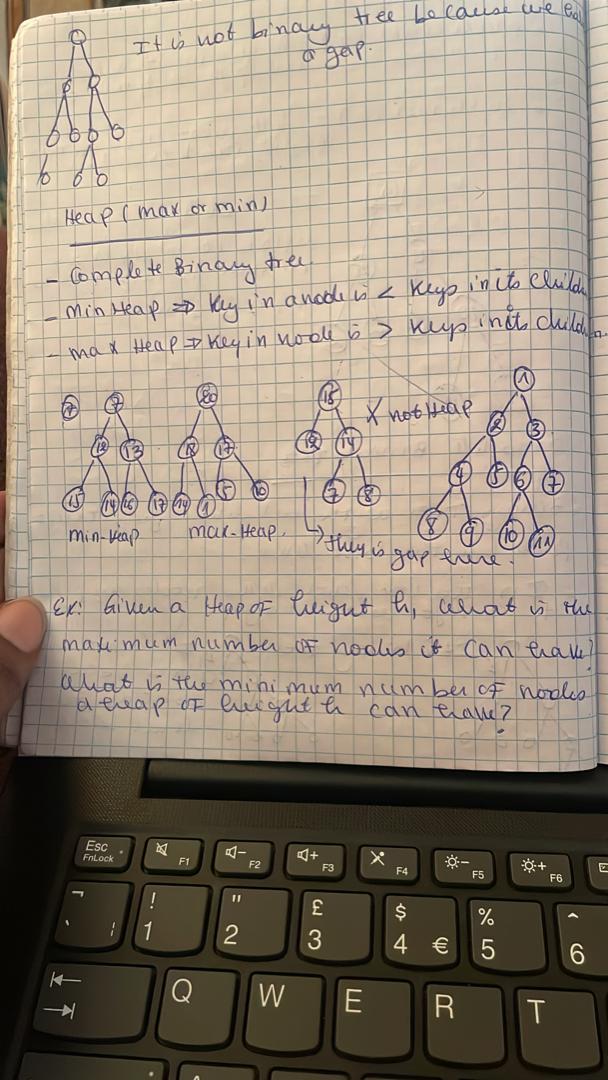 It is not binary tree because we
a gap.
Heap (max or min)
- Complete Binary tree
- Min Heap ⇒ Key in a node is < Keys in its Child
- max Heap ⇒ Key in node is > Keys in its children
7 7 20 15 X not Heap 1
12 13 18 17 12 14 2 3
15 14 16 17 14 1 5 10 7 8 4 5 6 7
8 9 10 11
min-Heap max-Heap. → they is gap there.
Ex: Given a Heap of height h, what is the
maximum number of nodes it can have?
What is the minimum number of nodes
a heap of height h can have?
Esc F1 F2 F3 F4 F5 F6
FnLock
¬ ` ¦ ! 1 " 2 £ 3 $ 4 € % 5 ^ 6
Q W E R T